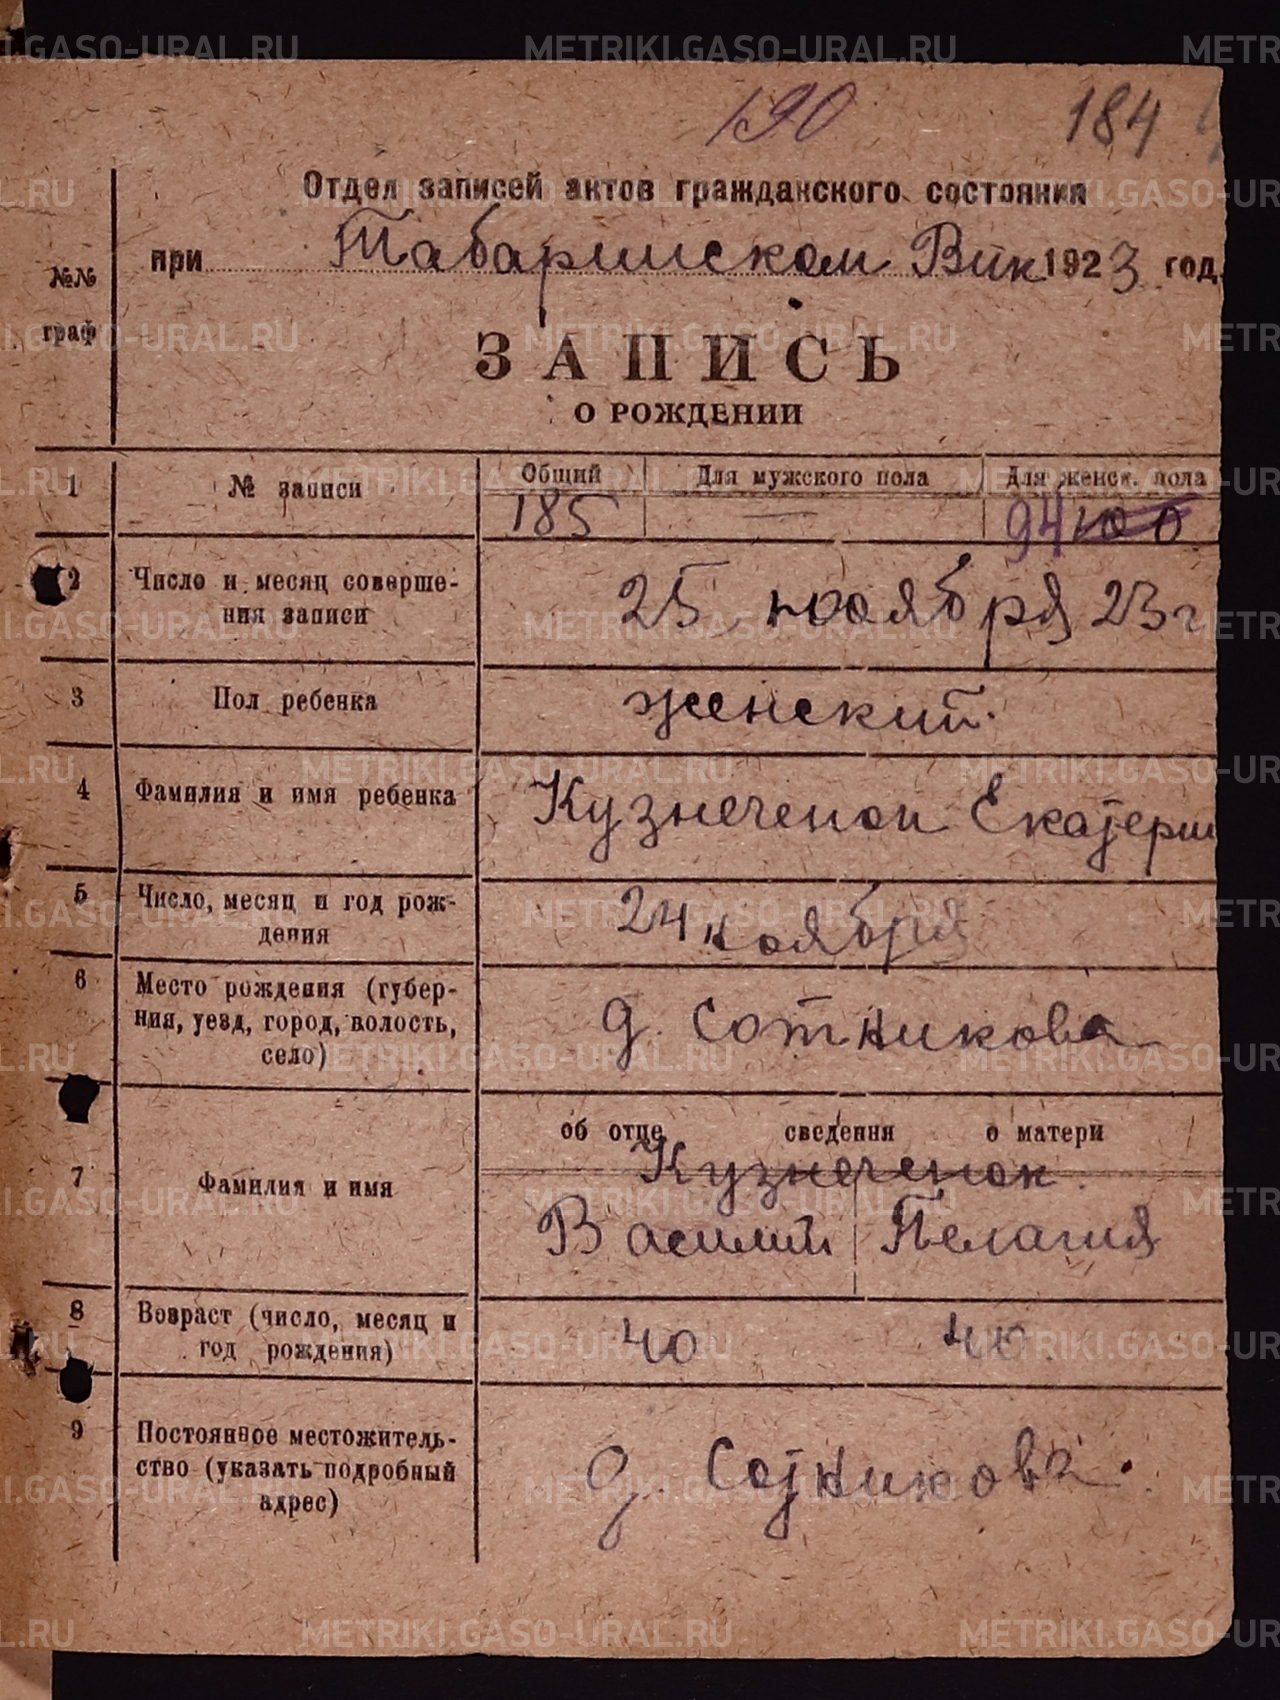 190
184
Отдел записей актов гражданского состояния
при Табаринском Вик 1923 год
№№ граф
ЗАПИСЬ
О РОЖДЕНИИ
1 № записи Общий Для мужского пола Для женск. пола
185 — 94 100
2 Число и месяц соверше-
ния записи
25 ноября 23 г
3 Пол ребенка женский.
4 Фамилия и имя ребенка Кузнеченок Екатерин
5 Число, месяц и год рож-
дения
24 ноября
6 Место рождения (губер-
ния, уезд, город, волость,
село)
д. Сотникова
об отце сведения о матери
7 Фамилия и имя
Кузнеченок.
Василий Пелагия
8 Возраст (число, месяц и
год рождения)
40 40
9 Постоянное местожитель-
ство (указать подробный
адрес)
д. Сотникова.
METRIKI.GASO-URAL.RU